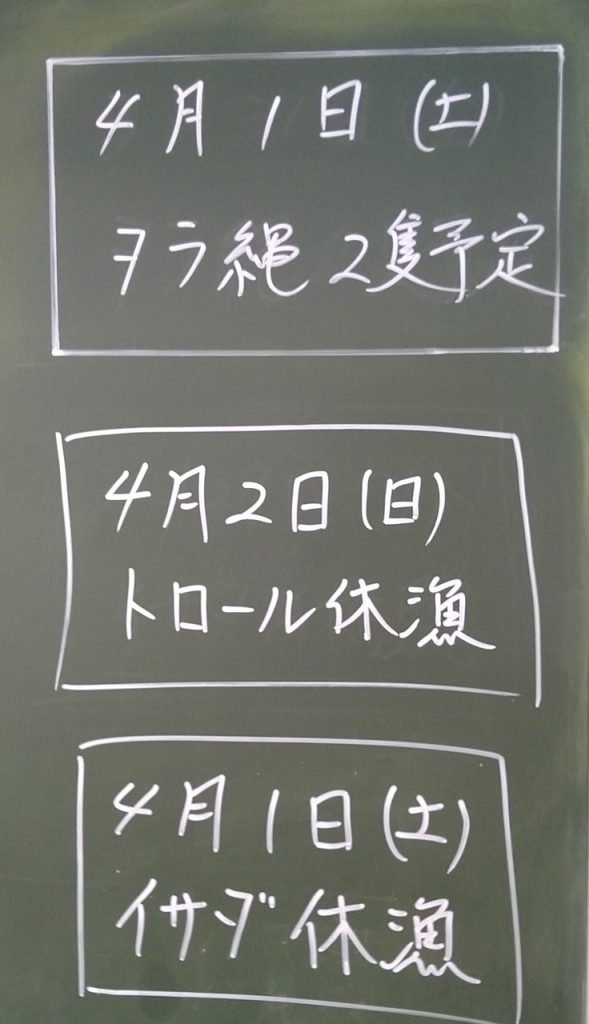 4月1日(土)
タラ縄 2隻予定
4月2日(日)
トロール休漁
4月1日(土)
イサダ休漁